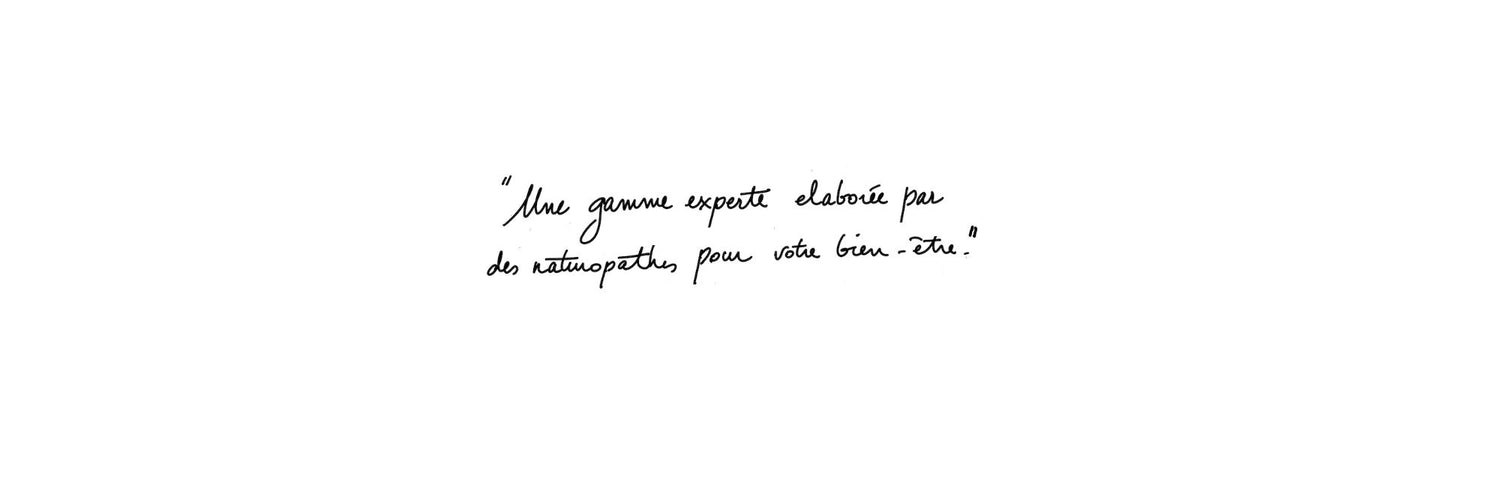 "Une gamme experte elaborée par
des naturopathes pour votre bien-être."